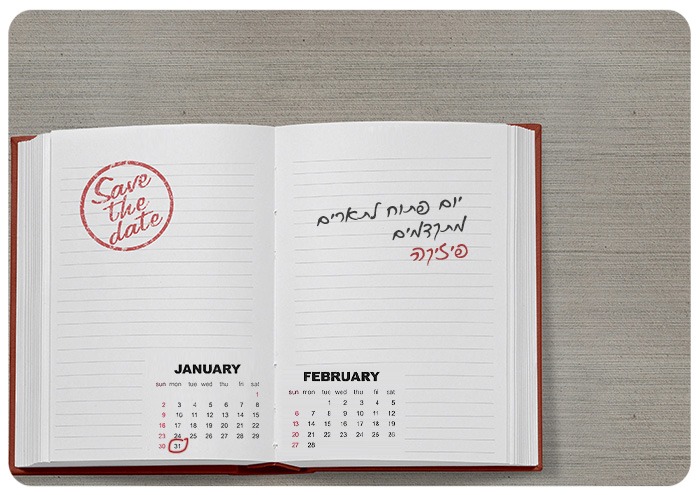 Save
the
date
יום פתוח לתארים
מתקדמים
פיזיקה
JANUARY
sun mon tue wed thu fri sat
1
2 3 4 5 6 7 8
9 10 11 12 13 14 15
16 17 18 19 20 21 22
23 24 25 26 27 28 29
30 31
FEBRUARY
sun mon tue wed thu fri sat
1 2 3 4 5
6 7 8 9 10 11 12
13 14 15 16 17 18 19
20 21 22 23 24 25 26
27 28